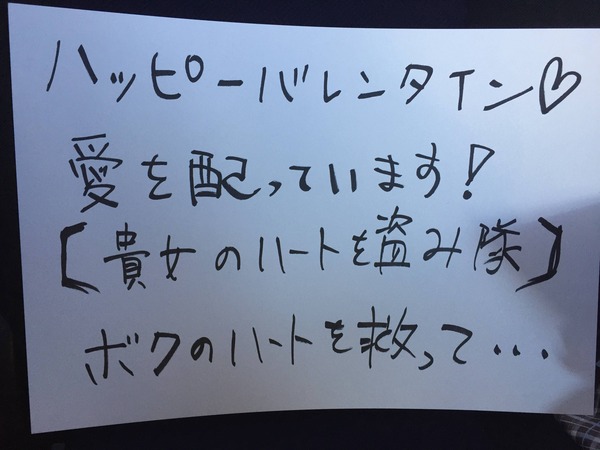 ハッピーバレンタイン♡
愛を配っています!
【貴女のハートを盗み隊】
ボクのハートを救って...